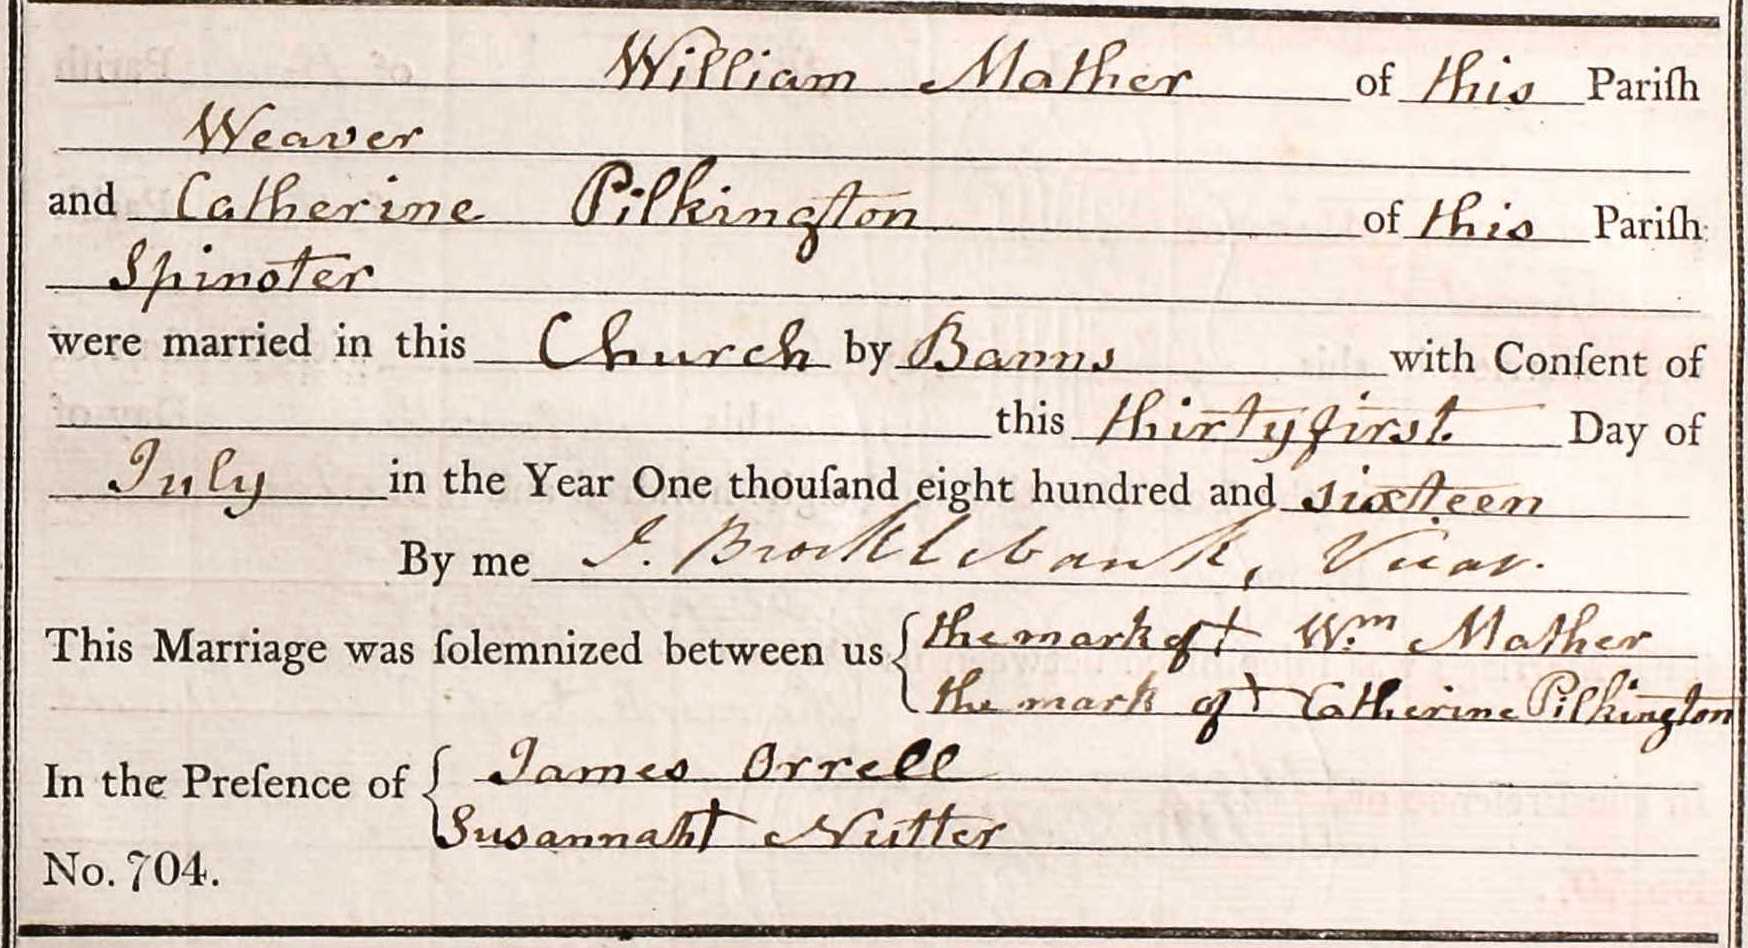 William Mather of this Pariſh
Weaver
and Catherine Pilkington of this Pariſh
Spinster
were married in this Church by Banns with Conſent of
this thirty first Day of
July in the Year One thouſand eight hundred and sixteen
By me J. Brocklebank, Vicar.
This Marriage was ſolemnized between us { the mark of + Wm Mather
the mark of + Catherine Pilkington
In the Preſence of { James Orrell
Susannah + Nutter
No. 704.